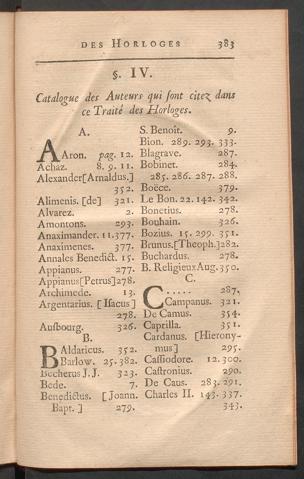 DES HORLOGES 383
§. IV.
Catalogue des Auteurs qui sont citez dans
ce Traité des Horloges.
A.
AAron. pag. 12.
Achaz. 8. 9. 11.
Alexander[Arnaldus.]
352.
Alimenis. [de] 321.
Alvarez. 2.
Amontons. 293.
Anaximander. 11. 377.
Anaximenes. 377.
Annales Benedict. 15.
Appianus. 277.
Appianus[Petrus]278.
Archimede. 13.
Argentarius. [Isaeus]
278.
Ausbourg. 326.
B.
BAldaricus. 352.
Barlow. 25. 382.
Becherus J. J. 323.
Bede. 7.
Benedictus. [Joann.
Bapt.] 279.
S. Benoit. 9.
Bion. 289. 293. 333.
Blagrave. 287.
Bobinet. 284.
285. 286. 287. 288.
Boëce. 379.
Le Bon. 22. 142. 342.
Bonetius. 278.
Bouhain. 326.
Bozius. 15. 299. 351.
Brunus.[Theoph.]282.
Buchardus. 278.
B. Religieux Aug. 350.
C.
C..... 287.
Campanus. 321.
De Camus. 354.
Caprilla. 351.
Cardanus. [Hierony-
mus] 295.
Cassiodore. 12. 300.
Castronius. 290.
De Caus. 283. 291.
Charles II. 143. 337.
343.